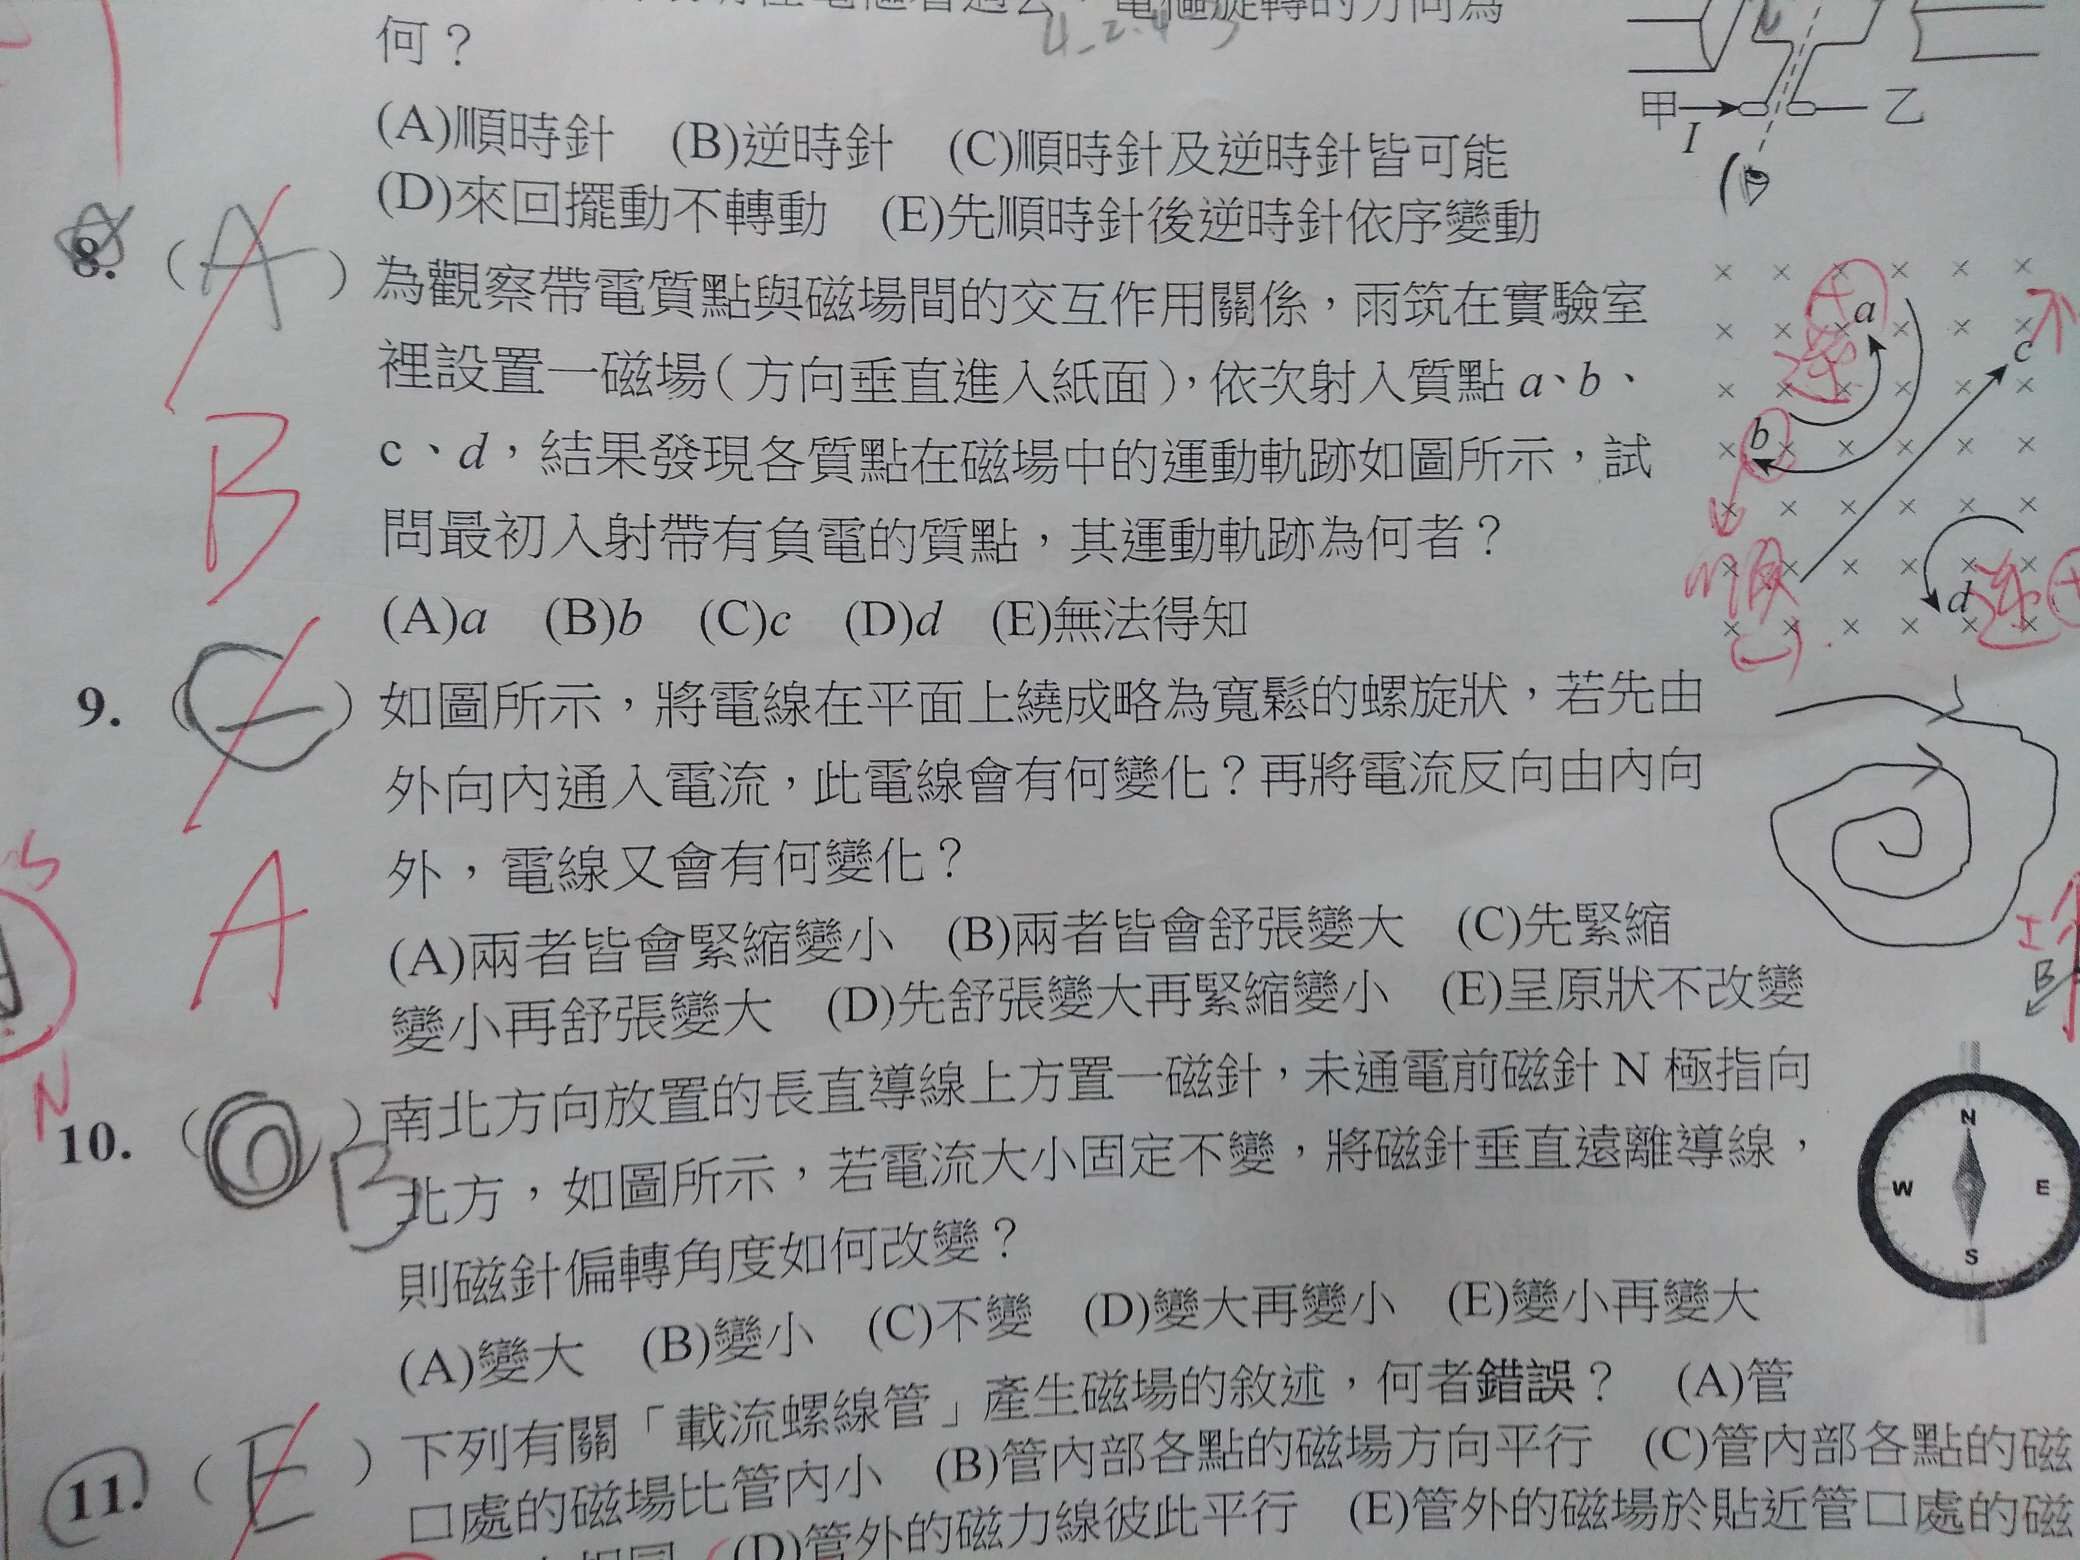 何？
(A)順時針 (B)逆時針 (C)順時針及逆時針皆可能
(D)來回擺動不轉動 (E)先順時針後逆時針依序變動
甲 I 乙
8. (A) 為觀察帶電質點與磁場間的交互作用關係，雨筑在實驗室
裡設置一磁場(方向垂直進入紙面)，依次射入質點 a、b、
c、d，結果發現各質點在磁場中的運動軌跡如圖所示，試
問最初入射帶有負電的質點，其運動軌跡為何者？
(A)a (B)b (C)c (D)d (E)無法得知
B
a
逆
b
c
不
順
(-)
d
逆
9. (C) 如圖所示，將電線在平面上繞成略為寬鬆的螺旋狀，若先由
外向內通入電流，此電線會有何變化？再將電流反向由內向
外，電線又會有何變化？
(A)兩者皆會緊縮變小 (B)兩者皆會舒張變大 (C)先緊縮
變小再舒張變大 (D)先舒張變大再緊縮變小 (E)呈原狀不改變
A
N
I
B
10. ( ) B 南北方向放置的長直導線上方置一磁針，未通電前磁針 N 極指向
北方，如圖所示，若電流大小固定不變，將磁針垂直遠離導線，
則磁針偏轉角度如何改變？
(A)變大 (B)變小 (C)不變 (D)變大再變小 (E)變小再變大
N
W E
S
11. (E) 下列有關「載流螺線管」產生磁場的敘述，何者錯誤？ (A)管
口處的磁場比管內小 (B)管內部各點的磁場方向平行 (C)管內部各點的磁
(D)管外的磁力線彼此平行 (E)管外的磁場於貼近管口處的磁